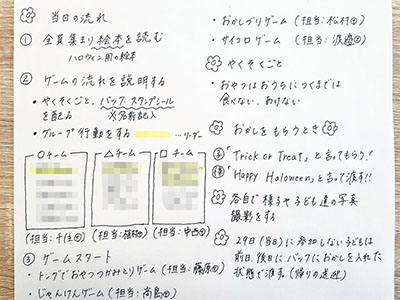 当日の流れ
① 全員集まり絵本を読む
ハロウィン用の絵本
② ゲームの流れを説明する
・やくそくごと、バック、スタンプシール
を配る ※名前記入
・グループ行動をする …リーダー
○チーム
△チーム
□チーム
(担当:千住㊞)
(担当:植村㊞)
(担当:中西㊞)
③ ゲームスタート
・トングでおやつつかみとりゲーム (担当:藤原㊞)
・じゃんけんゲーム (担当:高島㊞)
・おかしづりゲーム (担当:松村㊞)
・サイコロゲーム (担当:渡邉㊞)
やくそくごと
・おやつはおうちにつくまでは
食べない、あけない
おかしをもらうとき
「Trick or Treat」と言ってもらう!
「Happy Haloween」と言って渡す!!
各自で様子や子ども達の写真
撮影をする
29日(当日)に参加しない子どもは
前日、後日にバックにおかしを入れた
状態で渡す(帰りの送迎)